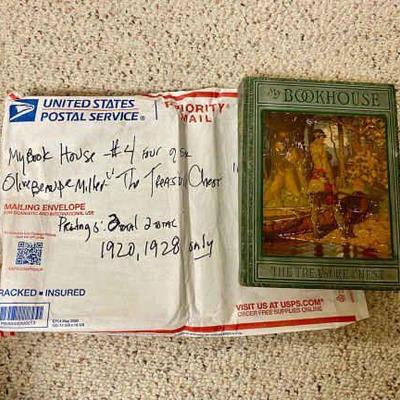 UNITED STATES
POSTAL SERVICE®
PRIORITY
MAIL
My Book House #4 Four of Six
Olive Beaupe Miller "The Treasure Chest
MAILING ENVELOPE
FOR DOMESTIC AND INTERNATIONAL USE
Printings: total 2 total
1920, 1928 only
TRACKED • INSURED
VISIT US AT USPS.COM®
ORDER FREE SUPPLIES ONLINE
My BOOKHOUSE
THE TREASURE CHEST